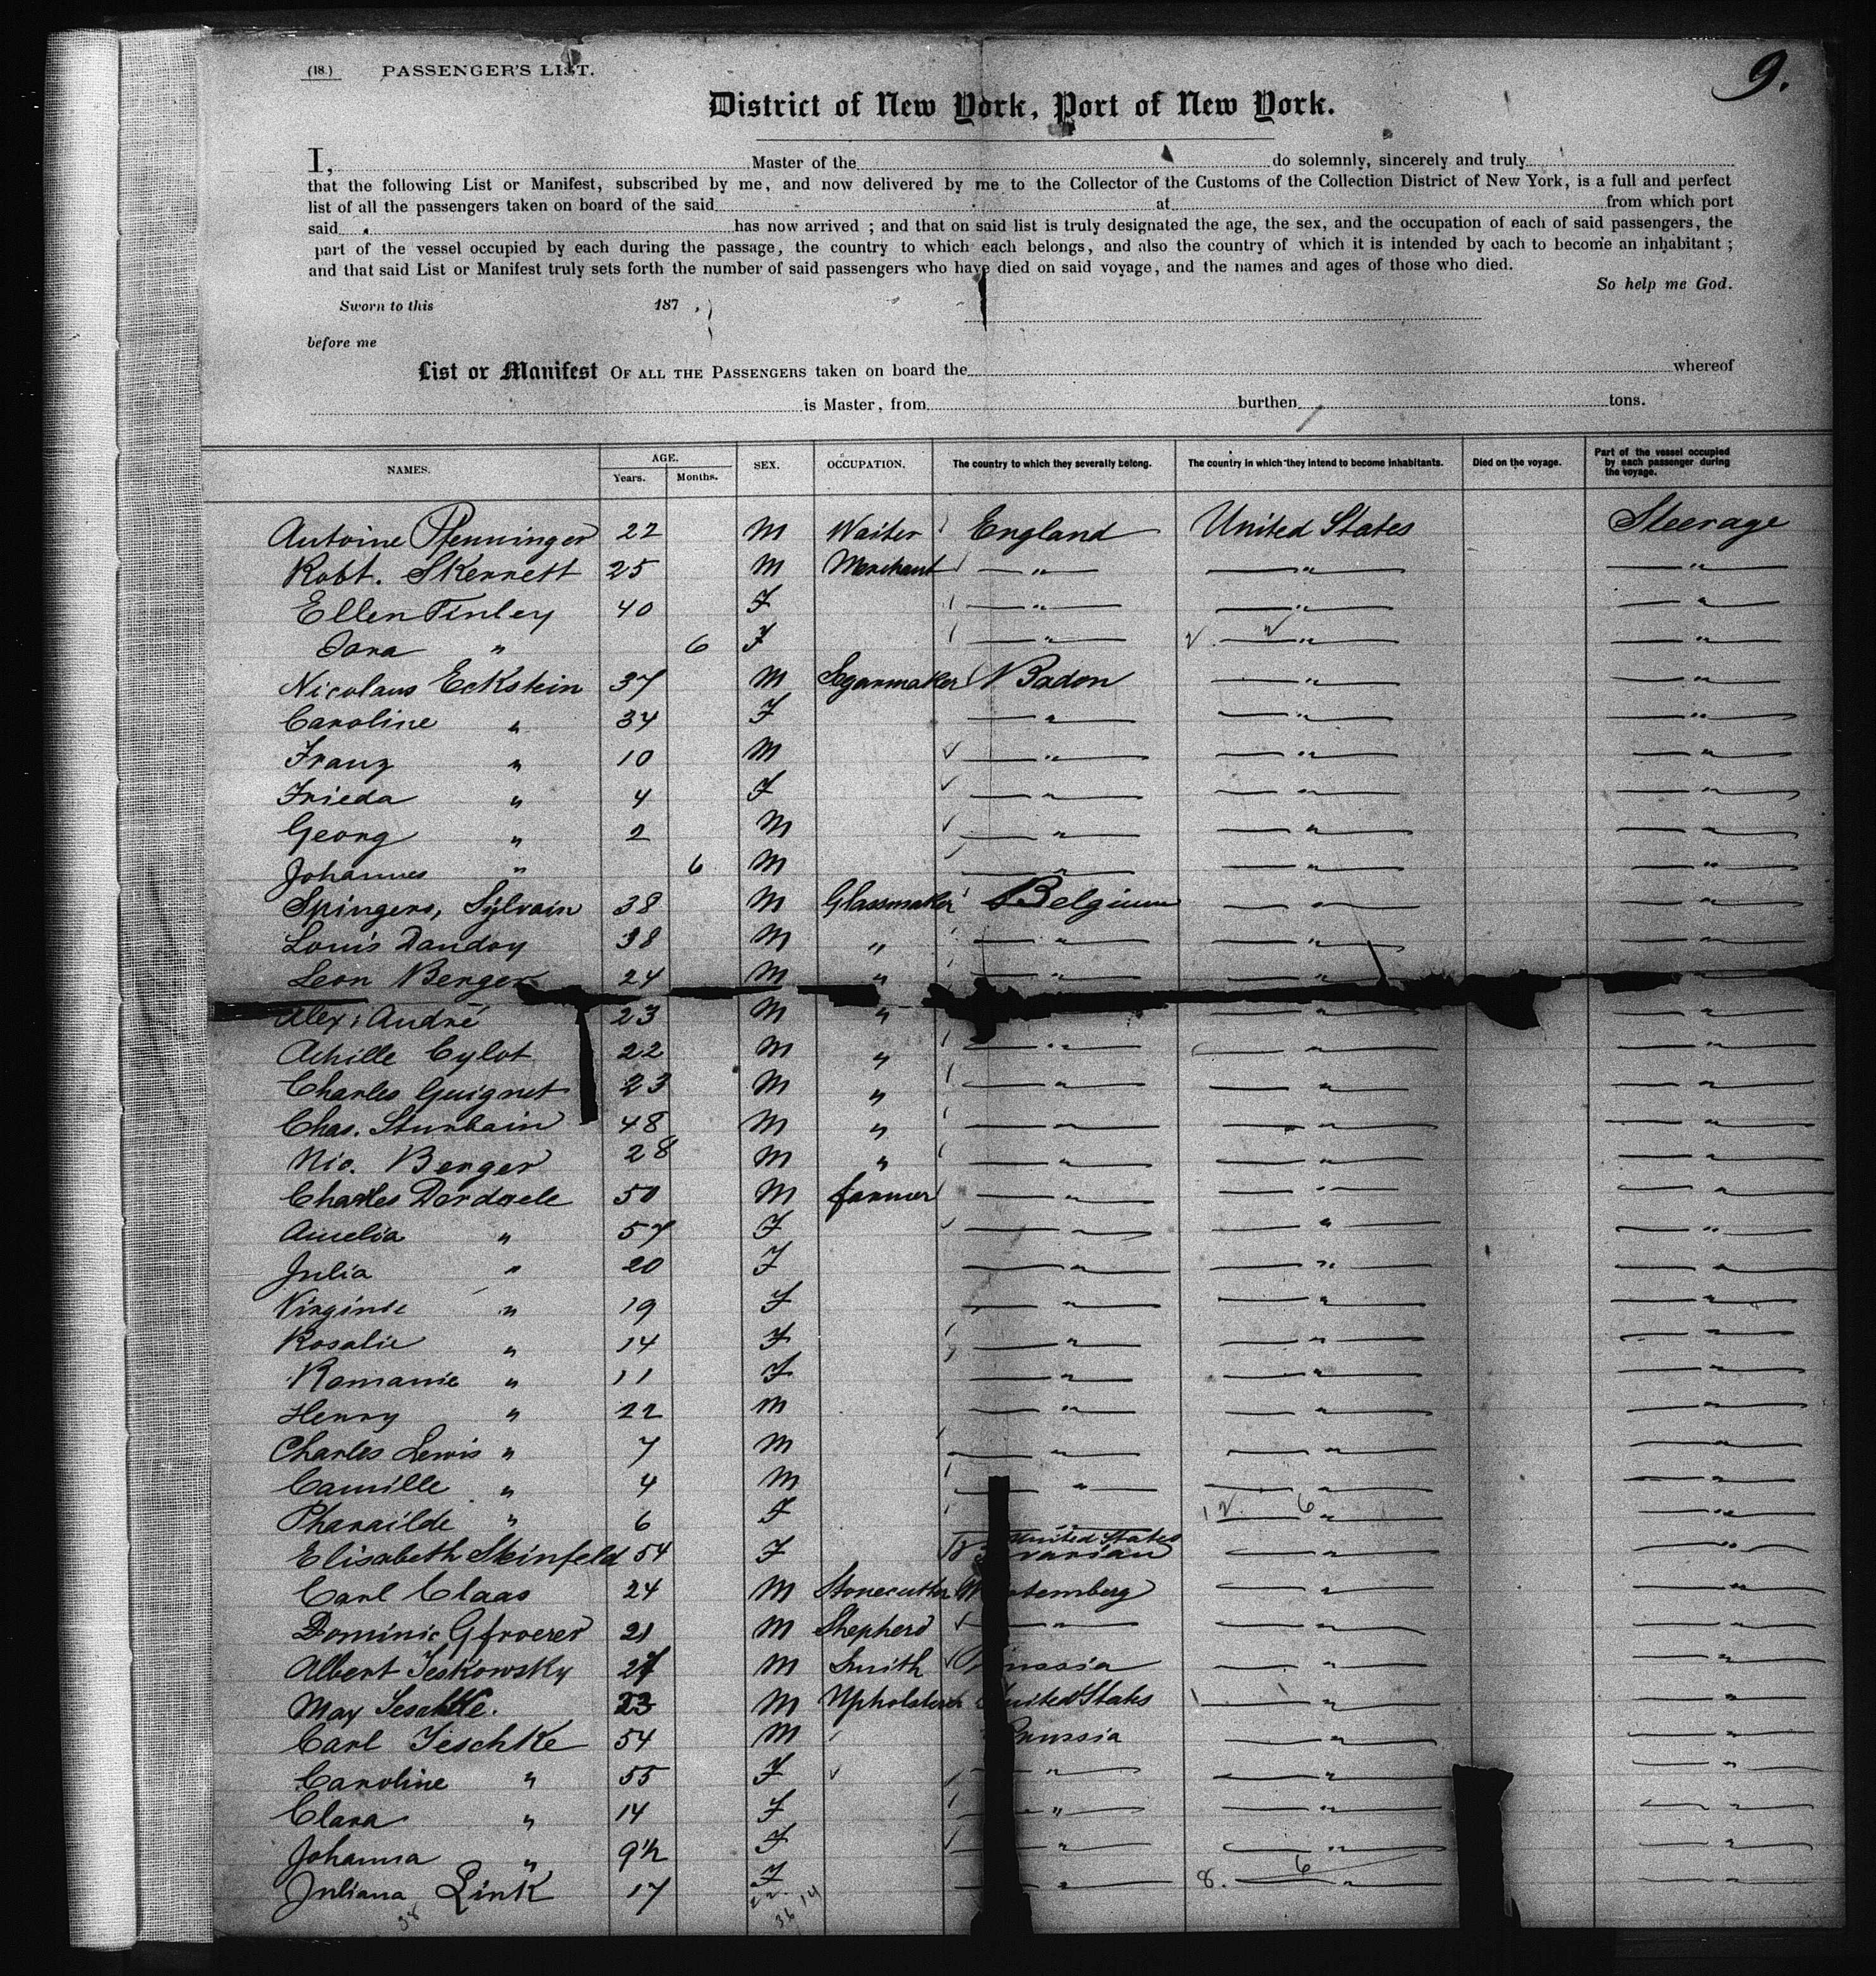 (18.) PASSENGER'S LIST. 9.
District of New York, Port of New York.
I, Master of the do solemnly, sincerely and truly
that the following List or Manifest, subscribed by me, and now delivered by me to the Collector of the Customs of the Collection District of New York, is a full and perfect
list of all the passengers taken on board of the said at from which port
said has now arrived ; and that on said list is truly designated the age, the sex, and the occupation of each of said passengers, the
part of the vessel occupied by each during the passage, the country to which each belongs, and also the country of which it is intended by each to become an inhabitant ;
and that said List or Manifest truly sets forth the number of said passengers who have died on said voyage, and the names and ages of those who died.
So help me God.
Sworn to this 187 .
before me
List or Manifest OF ALL THE PASSENGERS taken on board the whereof
is Master, from burthen tons.
NAMES. AGE. Years. Months. SEX. OCCUPATION. The country to which they severally belong. The country in which they intend to become inhabitants. Died on the voyage. Part of the vessel occupied by each passenger during the voyage.
Antoine Pfenninger 22 M Waiter England United States Steerage
Robt. Skerrett 25 M Merchant " " "
Ellen Finley 40 F " " "
" 6 F " " "
Nicolaus Eckstein 37 M Segarmaker Baden " "
Caroline " 34 F " " "
Franz " 10 M " " "
Frieda " 4 F " " "
Georg " 2 M " " "
Johannes " 6 M " " "
Spingers, Sylvain 38 M Glassmaker Belgium " "
Louis Dandoy 38 M " " " "
Leon Berger 24 M " " " "
Alex: André 23 M " " "
Achille Cylot 22 M " " " "
Charles Guignet 23 M " " " "
Chas. Sturbain 48 M " " " "
Nic. Berger 28 M " " " "
Charles Dardaele 50 M farmer " " "
Amelia " 57 F " " "
Julia " 20 F " " "
Virginie " 19 F " " "
Rosalie " 14 F " " "
Romanie " 11 F " " "
Henry " 22 M " " "
Charles Lewis " 7 M " " "
Camille " 4 M " " "
Pharailde " 6 F " "
Elisabeth Steinfeld 54 F United States " "
Carl Claas 24 M Stonecutter " "
Dominic Gfroerer 21 M Shepherd " " "
Albert Jeskowsky 27 M Smith " "
Max Jeschke. 23 M Upholsterer United States " "
Carl Jeschke 54 M Prussia " "
Caroline " 55 F " " "
Clara " 14 F " " "
Johanna " 9½ F " " "
Juliana Link 17 F " " "
38 36 14